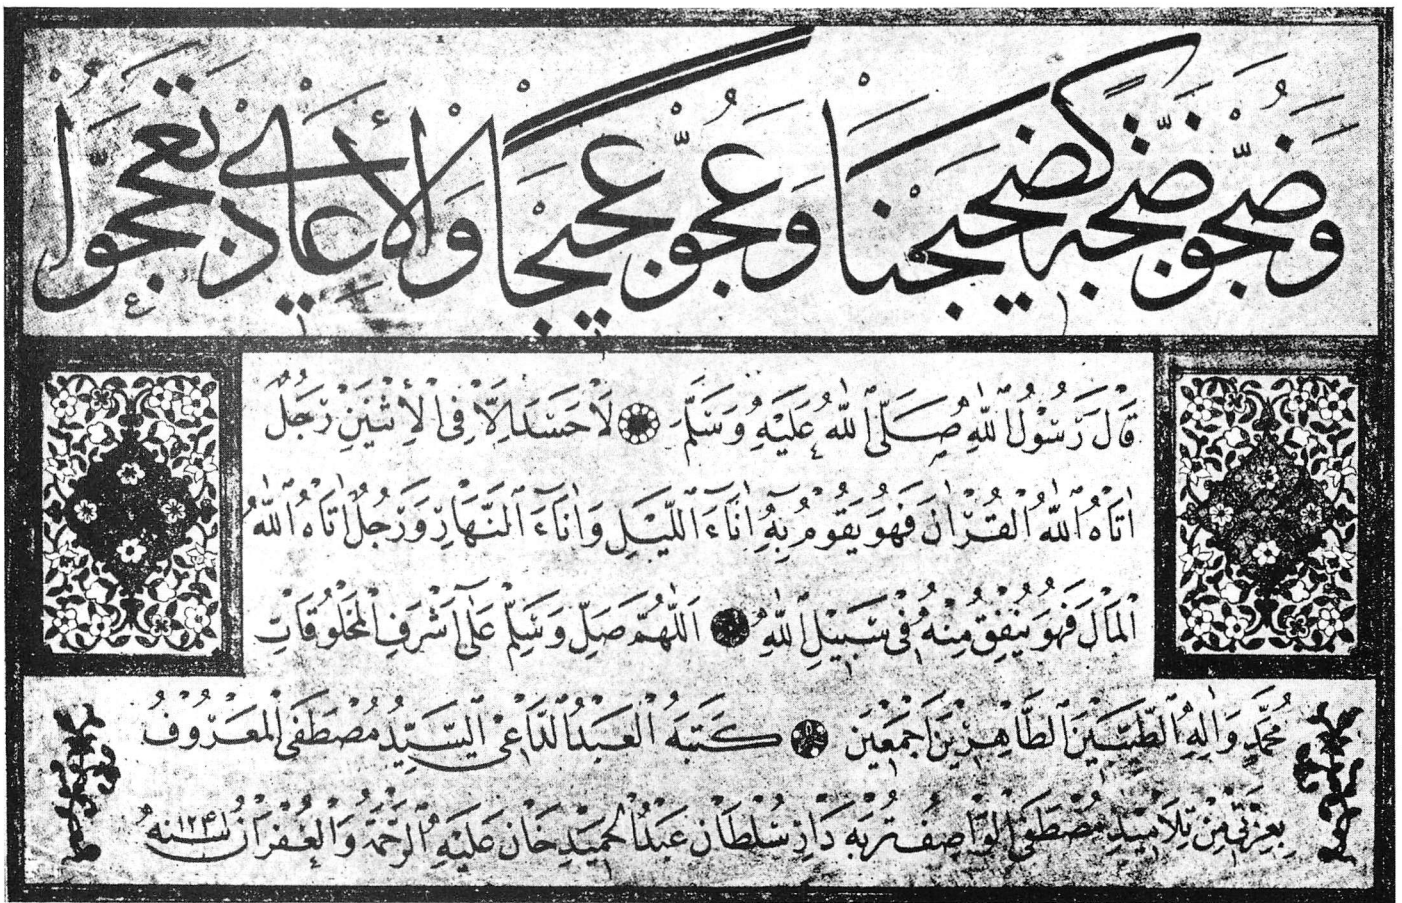 وضجو ضجة كضجيجنا وعجو عجيجا والأعادي تعججوا
قَالَ رَسُولُ اللهِ صَلَّى اللهُ عَلَيْهِ وَسَلَّمَ لَا حَسَدَ اِلَّا فِي الْاِثْنَيْنِ رَجُلٌ
اٰتَاهُ اللهُ الْقُرْاٰنَ فَهُوَ يَقُومُ بِهِ اٰنَاءَ اللَّيْلِ وَاٰنَاءَ النَّهَارِ وَرَجُلٌ اٰتَاهُ اللهُ
الْمَالَ فَهُوَ يُنْفِقُ مِنْهُ فِي سَبِيلِ اللهِ اَللّٰهُمَّ صَلِّ وَسَلِّمْ عَلٰى اَشْرَفِ الْمَخْلُوقَاتِ
مُحَمَّدٍ وَاٰلِهِ الطَّيِّبِينَ الطَّاهِرِينَ اَجْمَعِينَ كَتَبَهُ الْعَبْدُ الدَّاعِي السَّيِّدُ مُصْطَفَى الْمَعْرُوفُ
بِعِزَّتِي مِنْ تِلَامِيذِ مُصْطَفَى الْوَاصِفِ تُرْبَه دَارِ سُلْطَان عَبْدُ الْحَمِيدِ خَان عَلَيْهِ الرَّحْمَةُ وَالْغُفْرَانُ سنه